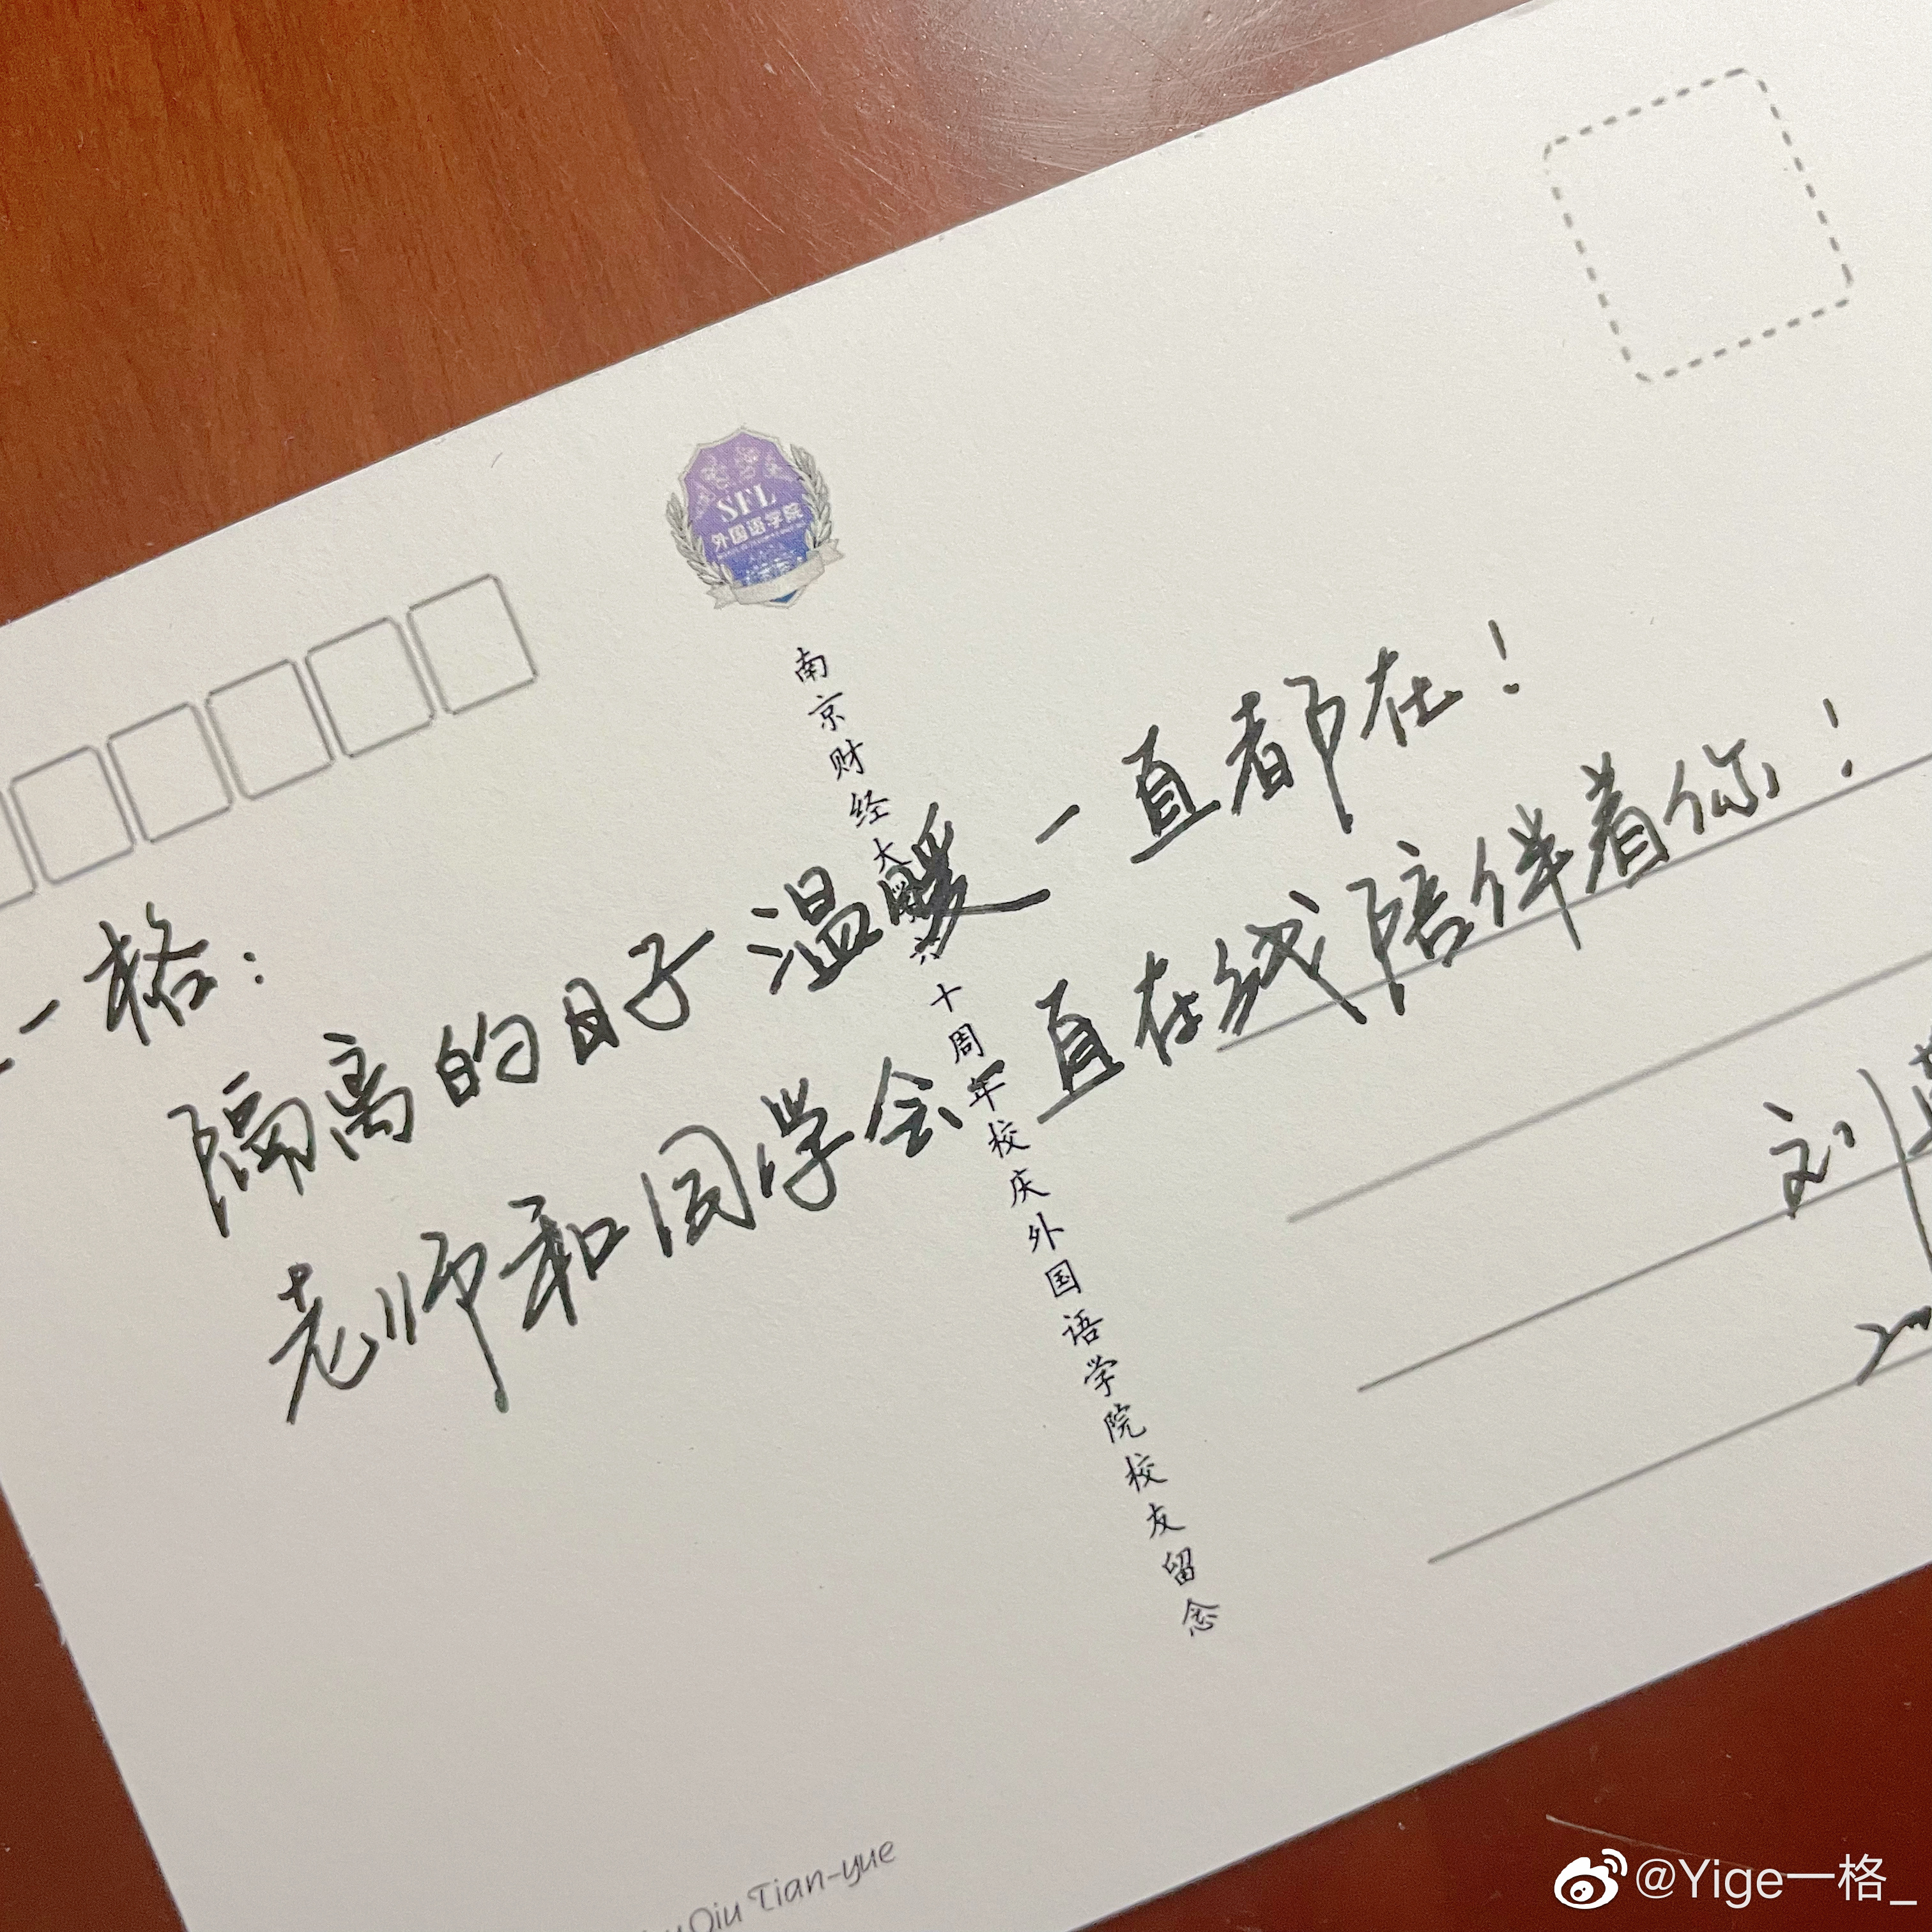 SFL
外国语学院
南京财经大学六十周年校庆外国语学院校友留念
一格：
隔离的日子温暖一直都在！
老师和同学会一直在线陪伴着你！
刘
Qiu Tian-yue
@Yige一格_